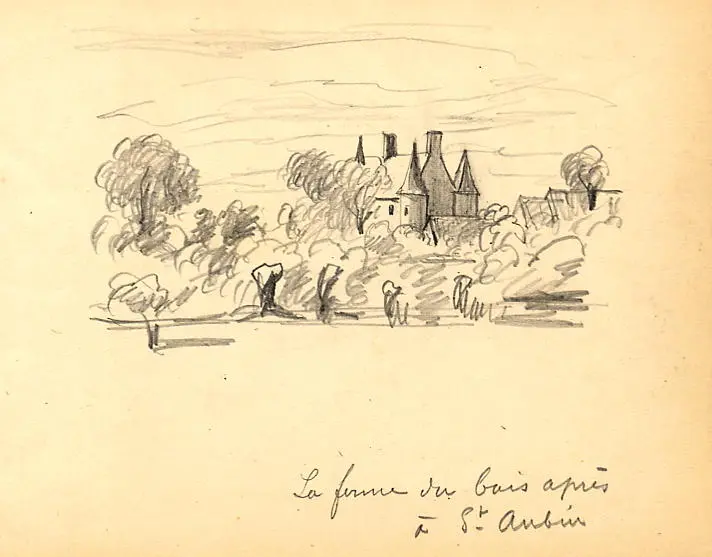 La ferme du bois après
à St Aubin